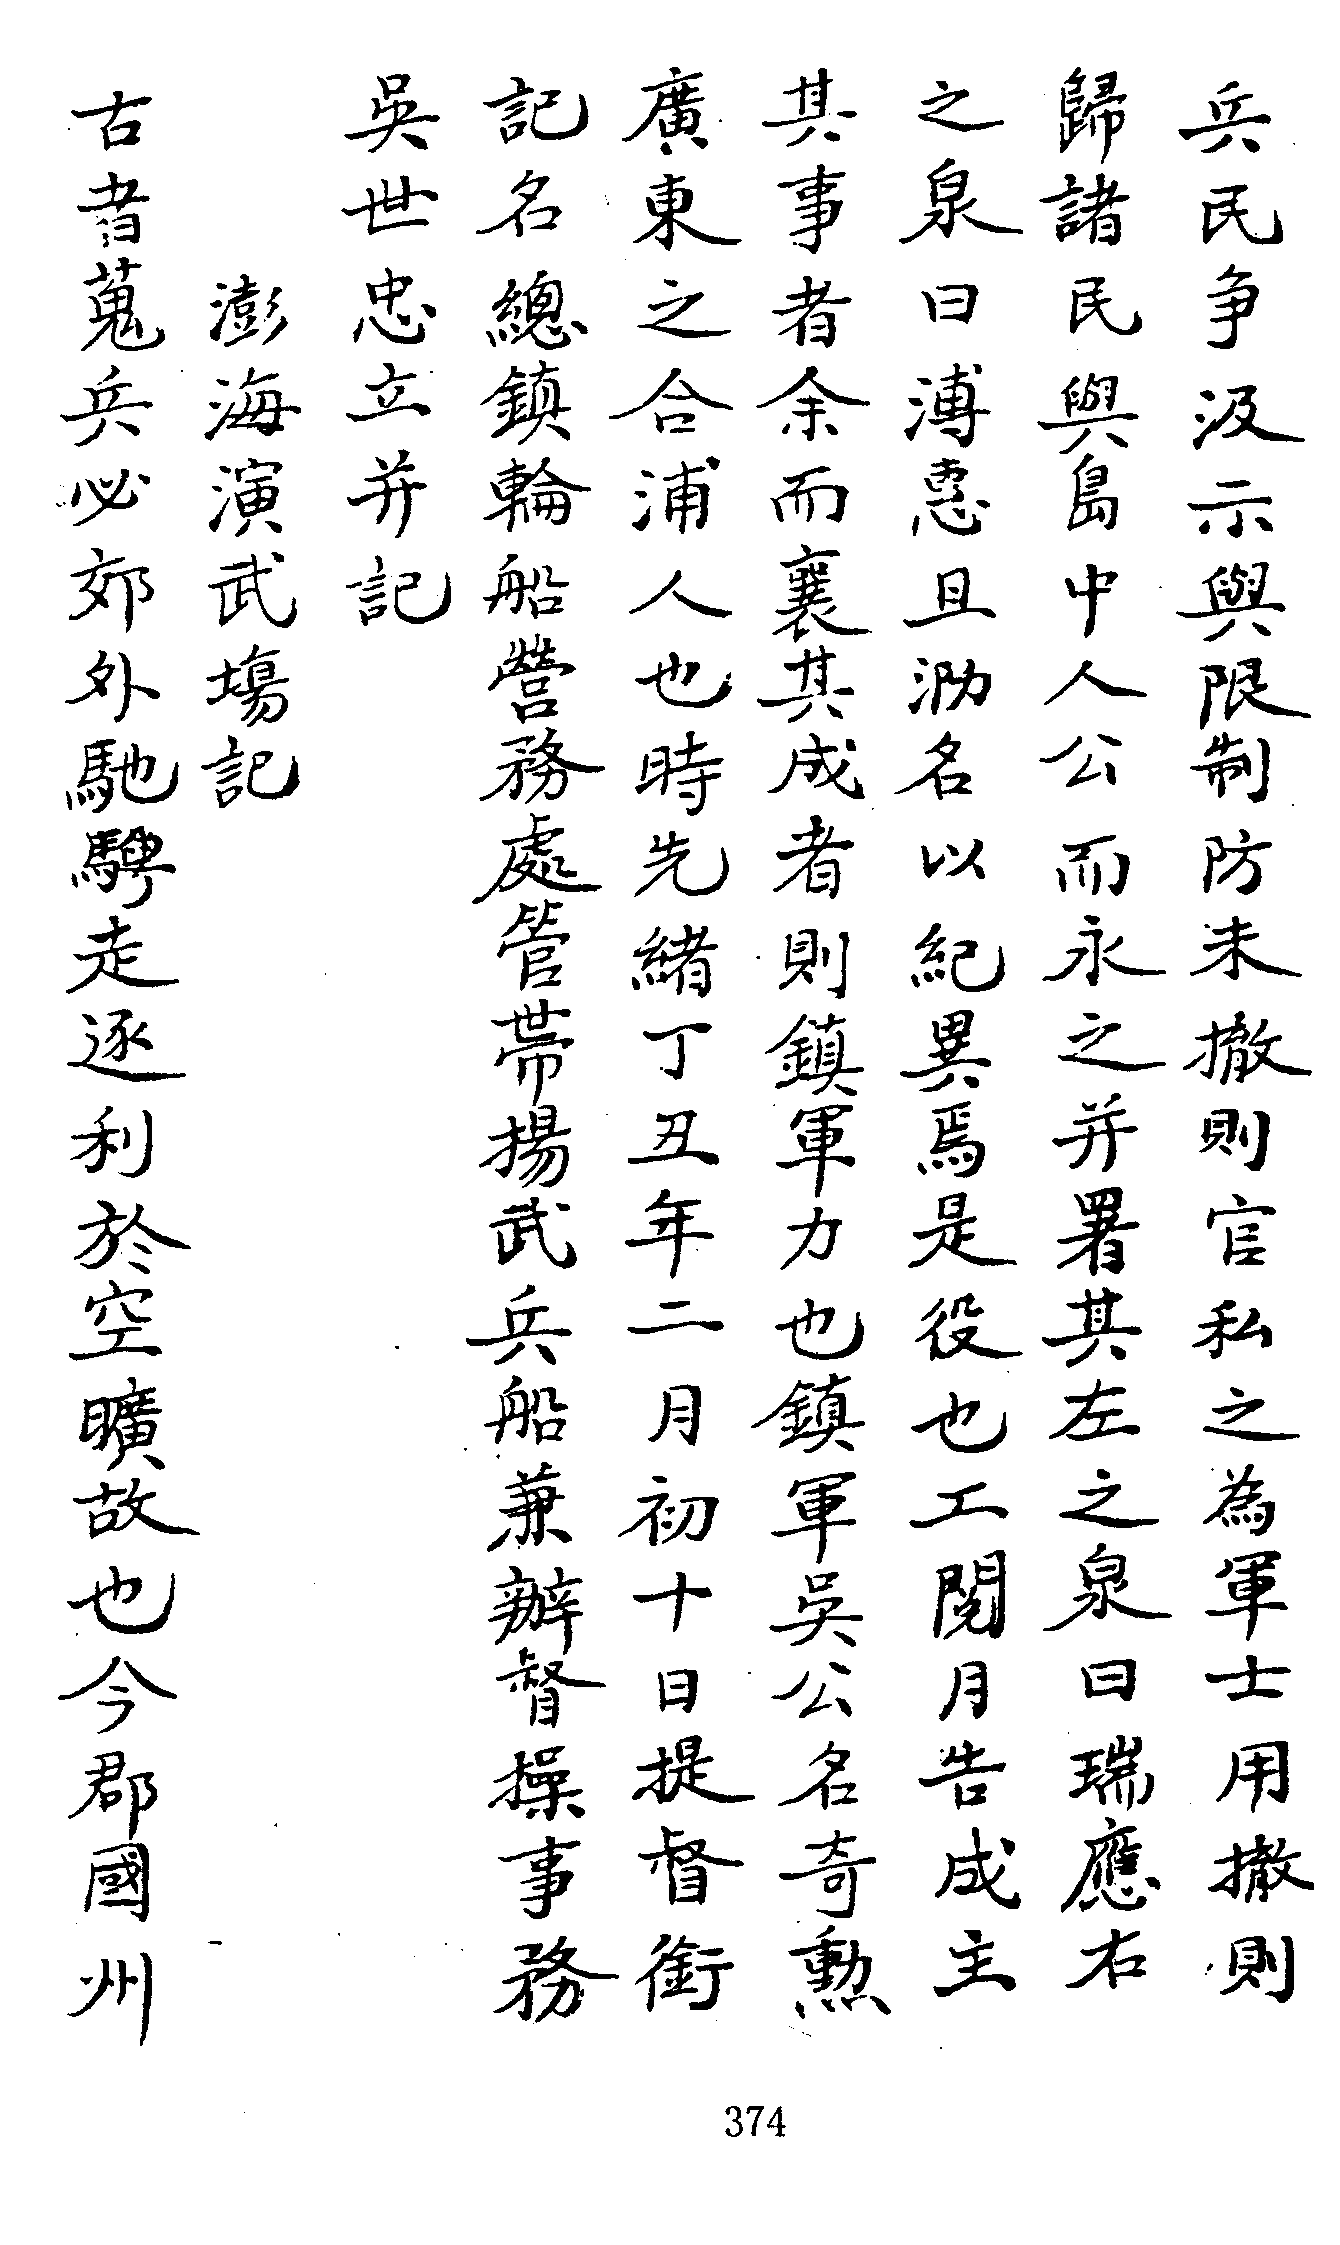 兵民爭汲示與限制防未撤則官私之為軍士用撤則
歸諸民與島中人公而永之并署其左之泉曰瑞應右
之泉曰溥惠且泐名以紀異焉是役也工閱月告成主
其事者余而襄其成者則鎮軍力也鎮軍吳公名奇勳
廣東之合浦人也時先緒丁丑年二月初十日提督銜
記名總鎮輪船營務處管帶揚武兵船兼辦督操事務
吳世忠立并記
澎海演武場記
古者蒐兵必郊外馳騁走逐利於空曠故也今郡國州
374